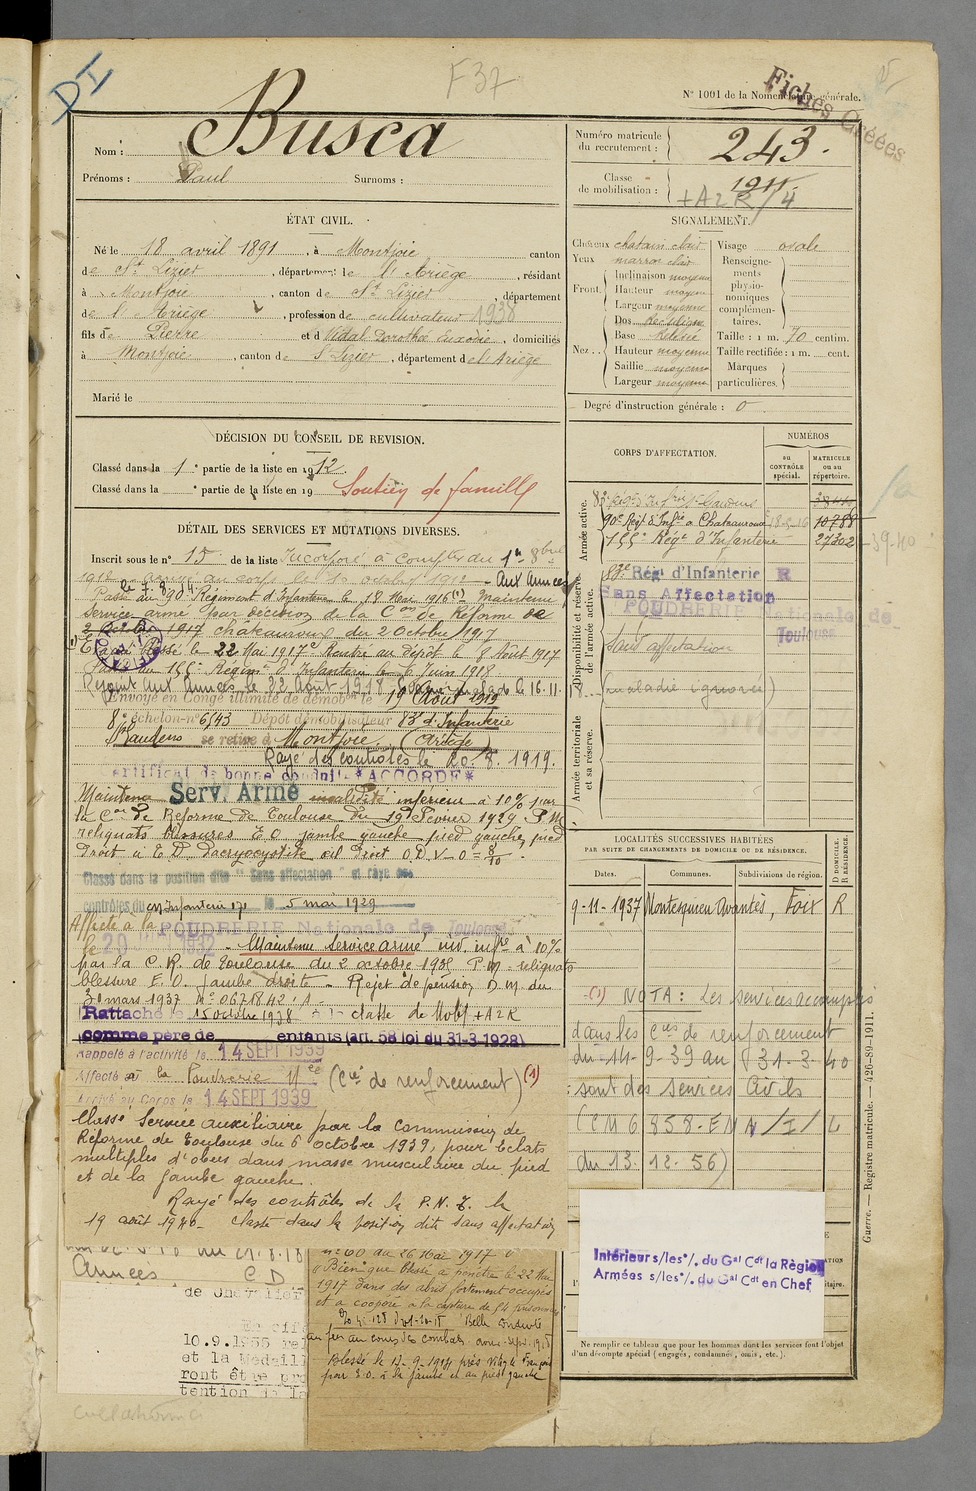 DI
F37
N° 1001 de la Nomenclature générale.
Fiches Créées
Nom : Busca
Prénoms : Paul Surnoms :
Numéro matricule du recrutement : 243.
Classe de mobilisation : 1911.
+A2R/4
ÉTAT CIVIL.
Né le 18 avril 1891, à Montjoie canton
de St Lizier, département de l'Ariège, résidant
à Montjoie, canton de St Lizier, département
de l'Ariège, profession de cultivateur 1938
fils de Pierre et de Vidal Dorothée Euxodie, domiciliés
à Montjoie, canton de St Lizier, département de l'Ariège
Marié le
SIGNALEMENT.
Cheveux chatain clair
Yeux marron clair
Front. Inclinaison moyenne
Hauteur moyenne
Largeur moyenne
Nez. Dos Rectiligne
Base Relevée
Hauteur moyenne
Saillie moyenne
Largeur moyenne
Visage ovale
Renseignements physionomiques complémentaires.
Taille : 1 m. 70 centim.
Taille rectifiée : 1 m. cent.
Marques particulières.
Degré d'instruction générale : 0
DÉCISION DU CONSEIL DE REVISION.
Classé dans la 1e partie de la liste en 1912.
Classé dans la e partie de la liste en 19 Soutien de famille
DÉTAIL DES SERVICES ET MUTATIONS DIVERSES.
Inscrit sous le n° 15 de la liste Incorporé à compter du 1er 8bre
1912 arrivé au corps le 10 octobre 1912 - Aux Armées
le 7.8.14
Passé au 90e Régiment d'Infanterie le 18 Mai 1916 (1) Maintenu
service armé par décision de la Con de Réforme de
châteauroux du 2 Octobre 1917
Blessé le 22 Mai 1917 Rentré au Dépôt le 8 Août 1917
Passé au 155e Régiment d'Infanterie le 6 Juin 1918
Rejoint aux Armées le 23 Août 1918 Evacué malade le 16.11.18 (maladie ignorée)
Envoyé en Congé illimité de démobon le 19 Août 1919
8e échelon n° 6543 Dépôt démobilisateur 83e d'Infanterie
St Gaudens se retire à Montjoie (Ariège)
Rayé des contrôles le 20.8.1919.
Certificat de bonne conduite *ACCORDÉ*
Maintenu Serv. Armé invalidité inférieure à 10% par
la Con de Réforme de Toulouse du 19 Février 1929 P.M.
reliquats blessures E.O. jambe gauche, pied gauche, pied
droit à E.D. Dacryocystite œil droit O.D.V-O = 8/10.
Classé dans la position dite "Sans affectation" et rayé des
contrôles du C.M. Infanterie 171 le 5 mai 1929
Affecté à la POUDRERIE Nationale de Toulouse
le 20 1932 - Maintenu service armé inv. infre à 10%
par la C.R. de Toulouse du 2 octobre 1935 P.M. reliquats
blessure E.O. jambe droite - Rejet de pension D.M. du
30 mars 1937 n° 0671842.A.
Rattaché le 15 octobre 1938 à la classe de Mobon +A2R
comme père de enfants (art. 58 loi du 31-3-1928)
Rappelé à l'activité le 14 SEPT 1939
Affecté à la Poudrerie Nle (Cie de renforcement) (1)
Arrivé au Corps le 14 SEPT 1939
Classé Service auxiliaire par la commission de
Réforme de Toulouse du 6 octobre 1939, pour Eclats
multiples d'obus dans masse musculaire du pied
et de la jambe gauche.
Rayé des contrôles de la P.N.T. le
19 août 1940 - classé dans la position dite sans affectation
Armées C D
de Chevalier
10.9.1956
et la Médaill
ront être pro
tention de la
n° 60 du 26 Mai 1917
"Bien que blessé a pénétré le 22 Mai
1917 dans des abris fortement occupés
et a coopéré à la capture de 54 prisonniers"
Belle conduite
au feu au cours des combats août-sept. 1918
Blessé le 12-9-1914 près Vitry le François
par E.O. à la jambe et au pied gauche
CORPS D'AFFECTATION.
NUMÉROS
au CONTRÔLE spécial.
MATRICULE ou au répertoire.
Armée active.
83e Régt Infrie St Gaudens
90e Régt d'Infie à Chateauroux 18-5-16 10788
155e Régt d'Infanterie 27302
39-40
Disponibilité et réserve de l'armée active.
83e Régt d'Infanterie R
Sans Affectation
POUDRERIE Nationale de
Toulouse
Sans affectation
Armée territoriale et sa réserve.
LOCALITÉS SUCCESSIVES HABITÉES
PAR SUITE DE CHANGEMENTS DE DOMICILE OU DE RÉSIDENCE.
Dates. Communes. Subdivisions de région. D DOMICILE. R RÉSIDENCE.
9-11-1937 Montesquieu Avantès, Foix R
(1) NOTA : Les services accomplis
dans les Cies de renforcement
du 14-9-39 au 31-3-40
sont des services Civils
(CM 6858-EMM/I/L
du 13.12.56)
Intérieur s/les °/. du Gal Cdt la Région
Armées s/les °/. du Gal Cdt en Chef
Ne remplir ce tableau que pour les hommes dont les services font l'objet
d'un décompte spécial (engagés, condamnés, omis, etc.).
Guerre. — Registre matricule. — 426-89-1911.